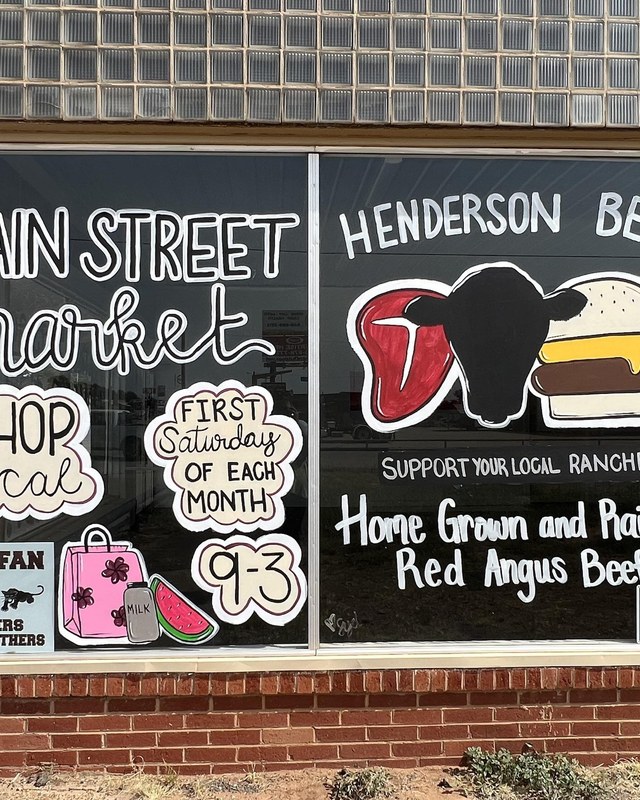 AIN STREET
market
HOP
cal
FIRST
Saturday
OF EACH
MONTH
9-3
MILK
FAN
ERS
THERS
HENDERSON BE
SUPPORT YOUR LOCAL RANCHE
Home Grown and Rai
Red Angus Beef